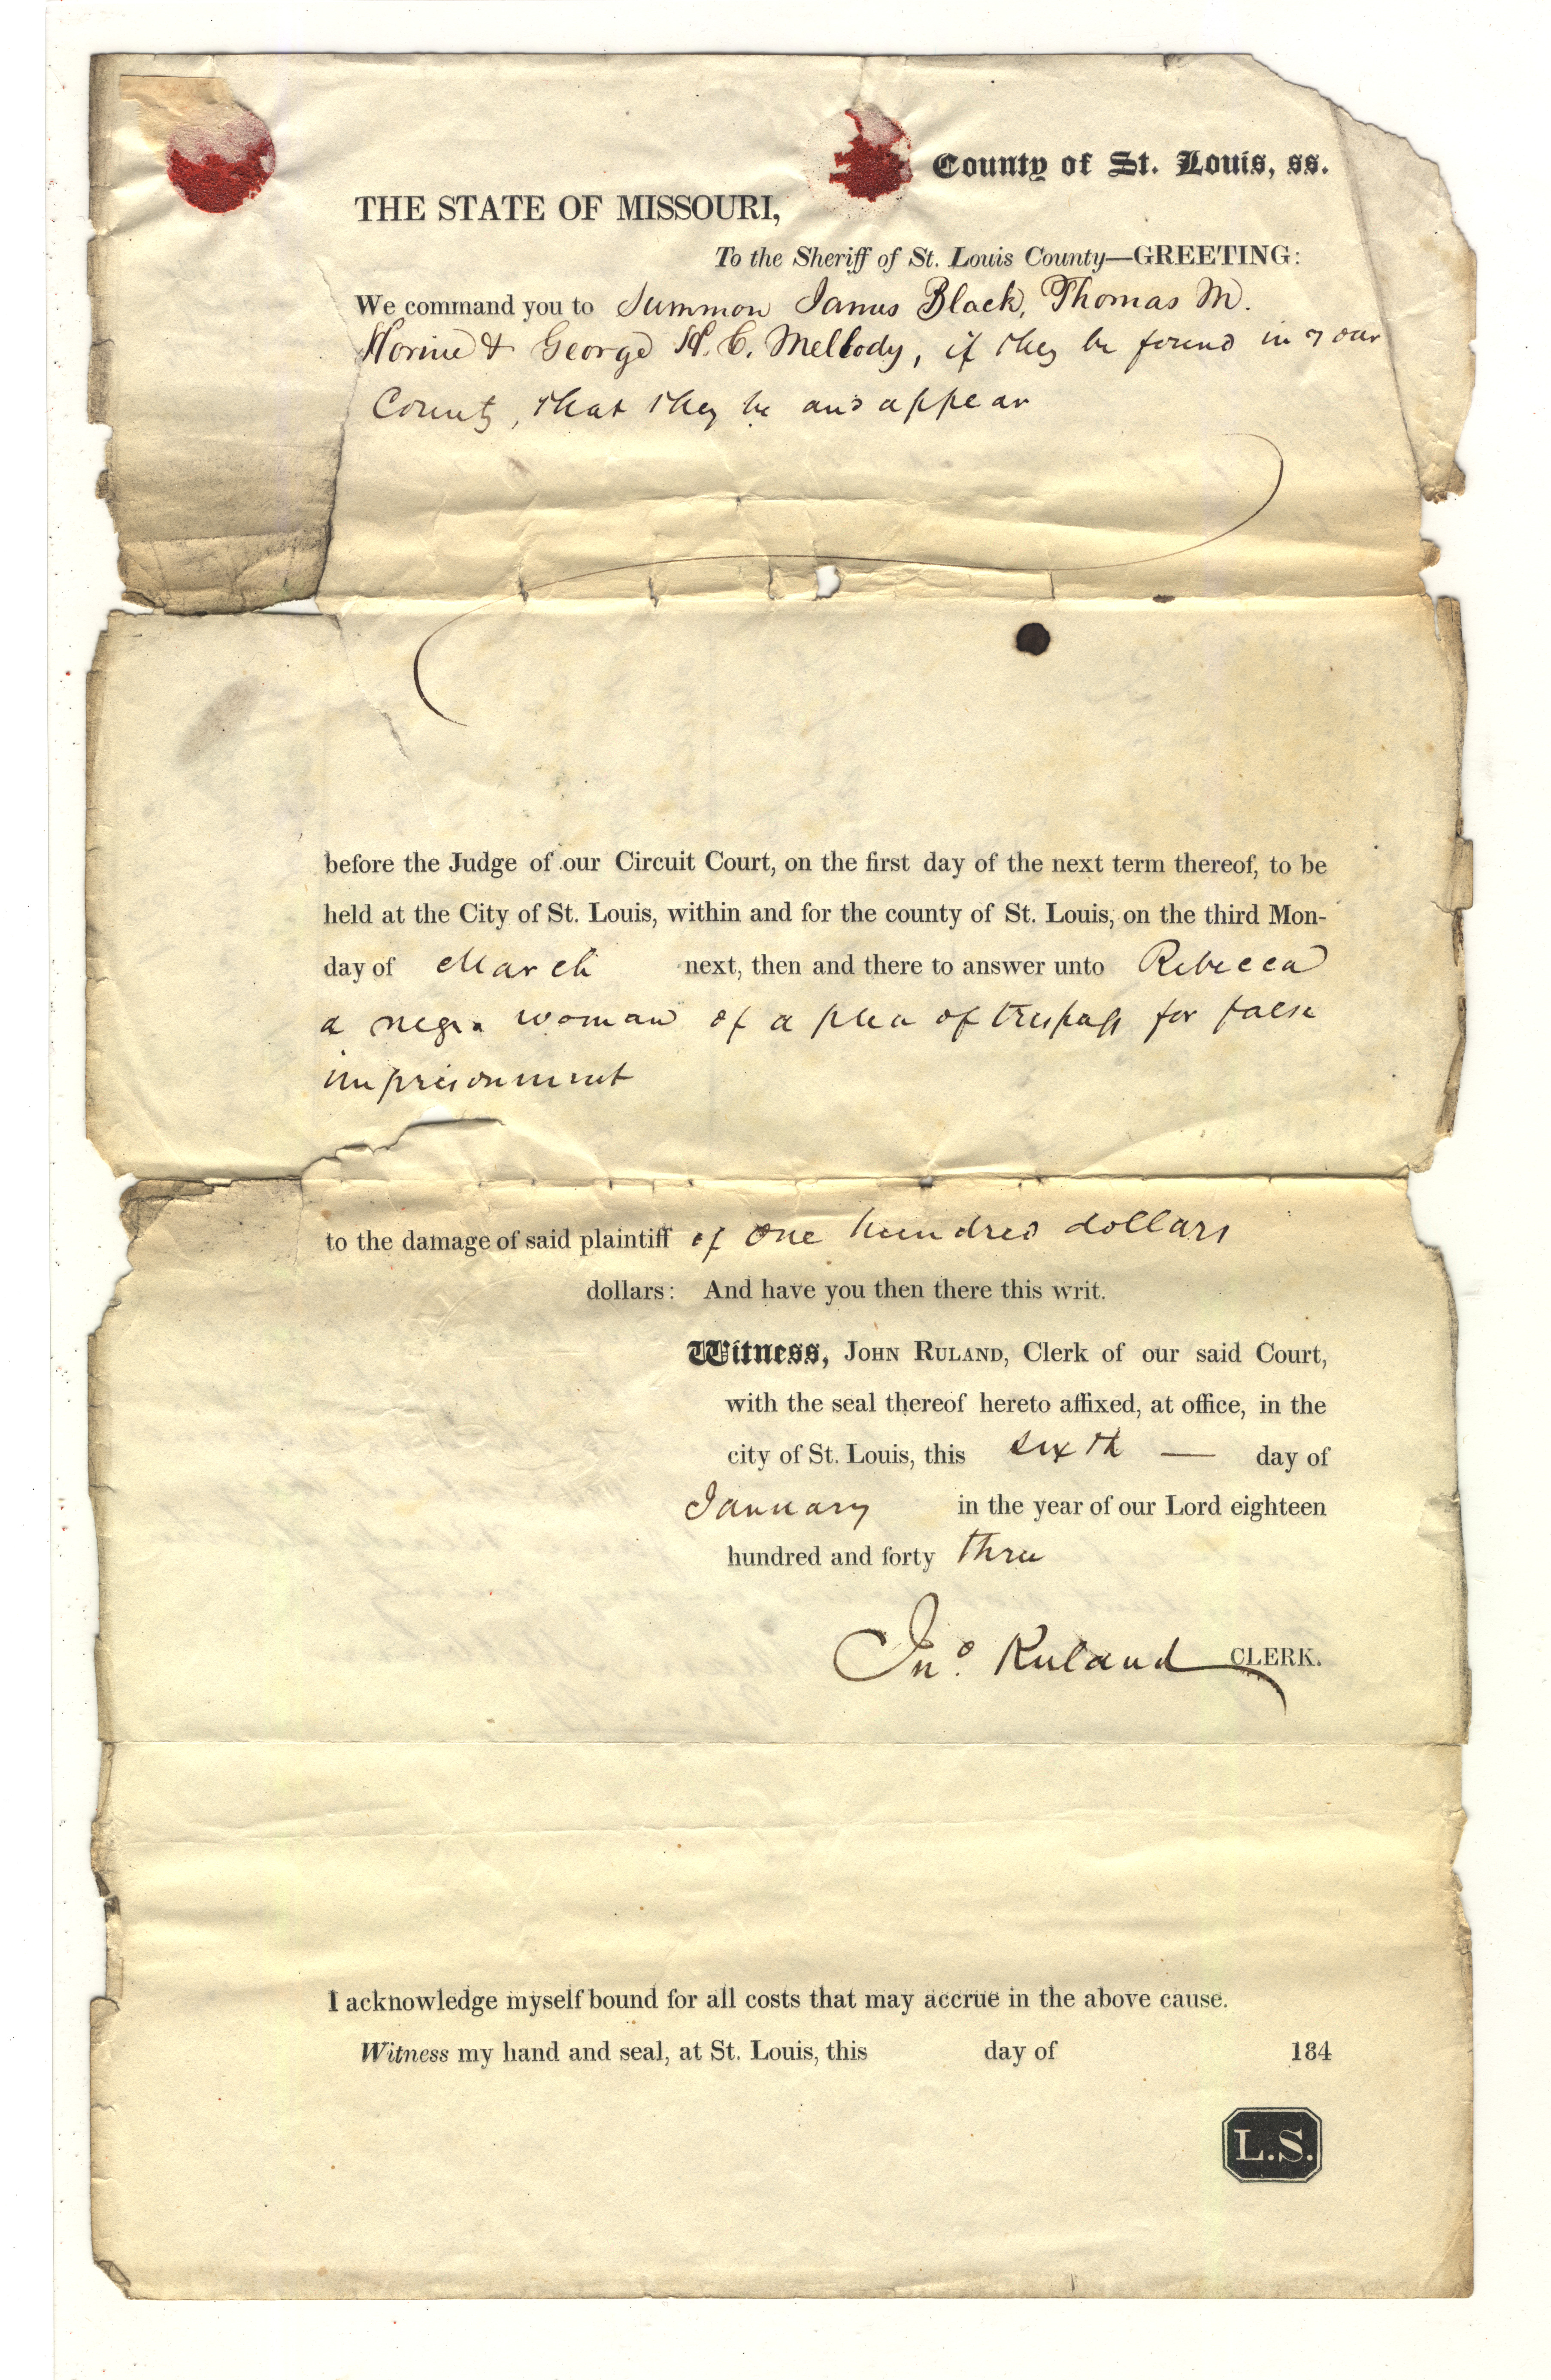 County of St. Louis, ss.
THE STATE OF MISSOURI,
To the Sheriff of St. Louis County—GREETING:
We command you to Summon James Black, Thomas M.
Horine & George H. C. Mellody, if they be found in your
County, that they be and appear
before the Judge of our Circuit Court, on the first day of the next term thereof, to be
held at the City of St. Louis, within and for the county of St. Louis, on the third Mon-
day of March next, then and there to answer unto Rebecca
a negro woman of a plea of trespass for false
imprisonment
to the damage of said plaintiff of One hundred dollars
dollars: And have you then there this writ.
Witness, JOHN RULAND, Clerk of our said Court,
with the seal thereof hereto affixed, at office, in the
city of St. Louis, this sixth — day of
January in the year of our Lord eighteen
hundred and forty three
Jno. Ruland CLERK.
I acknowledge myself bound for all costs that may accrue in the above cause.
Witness my hand and seal, at St. Louis, this day of 184
L.S.